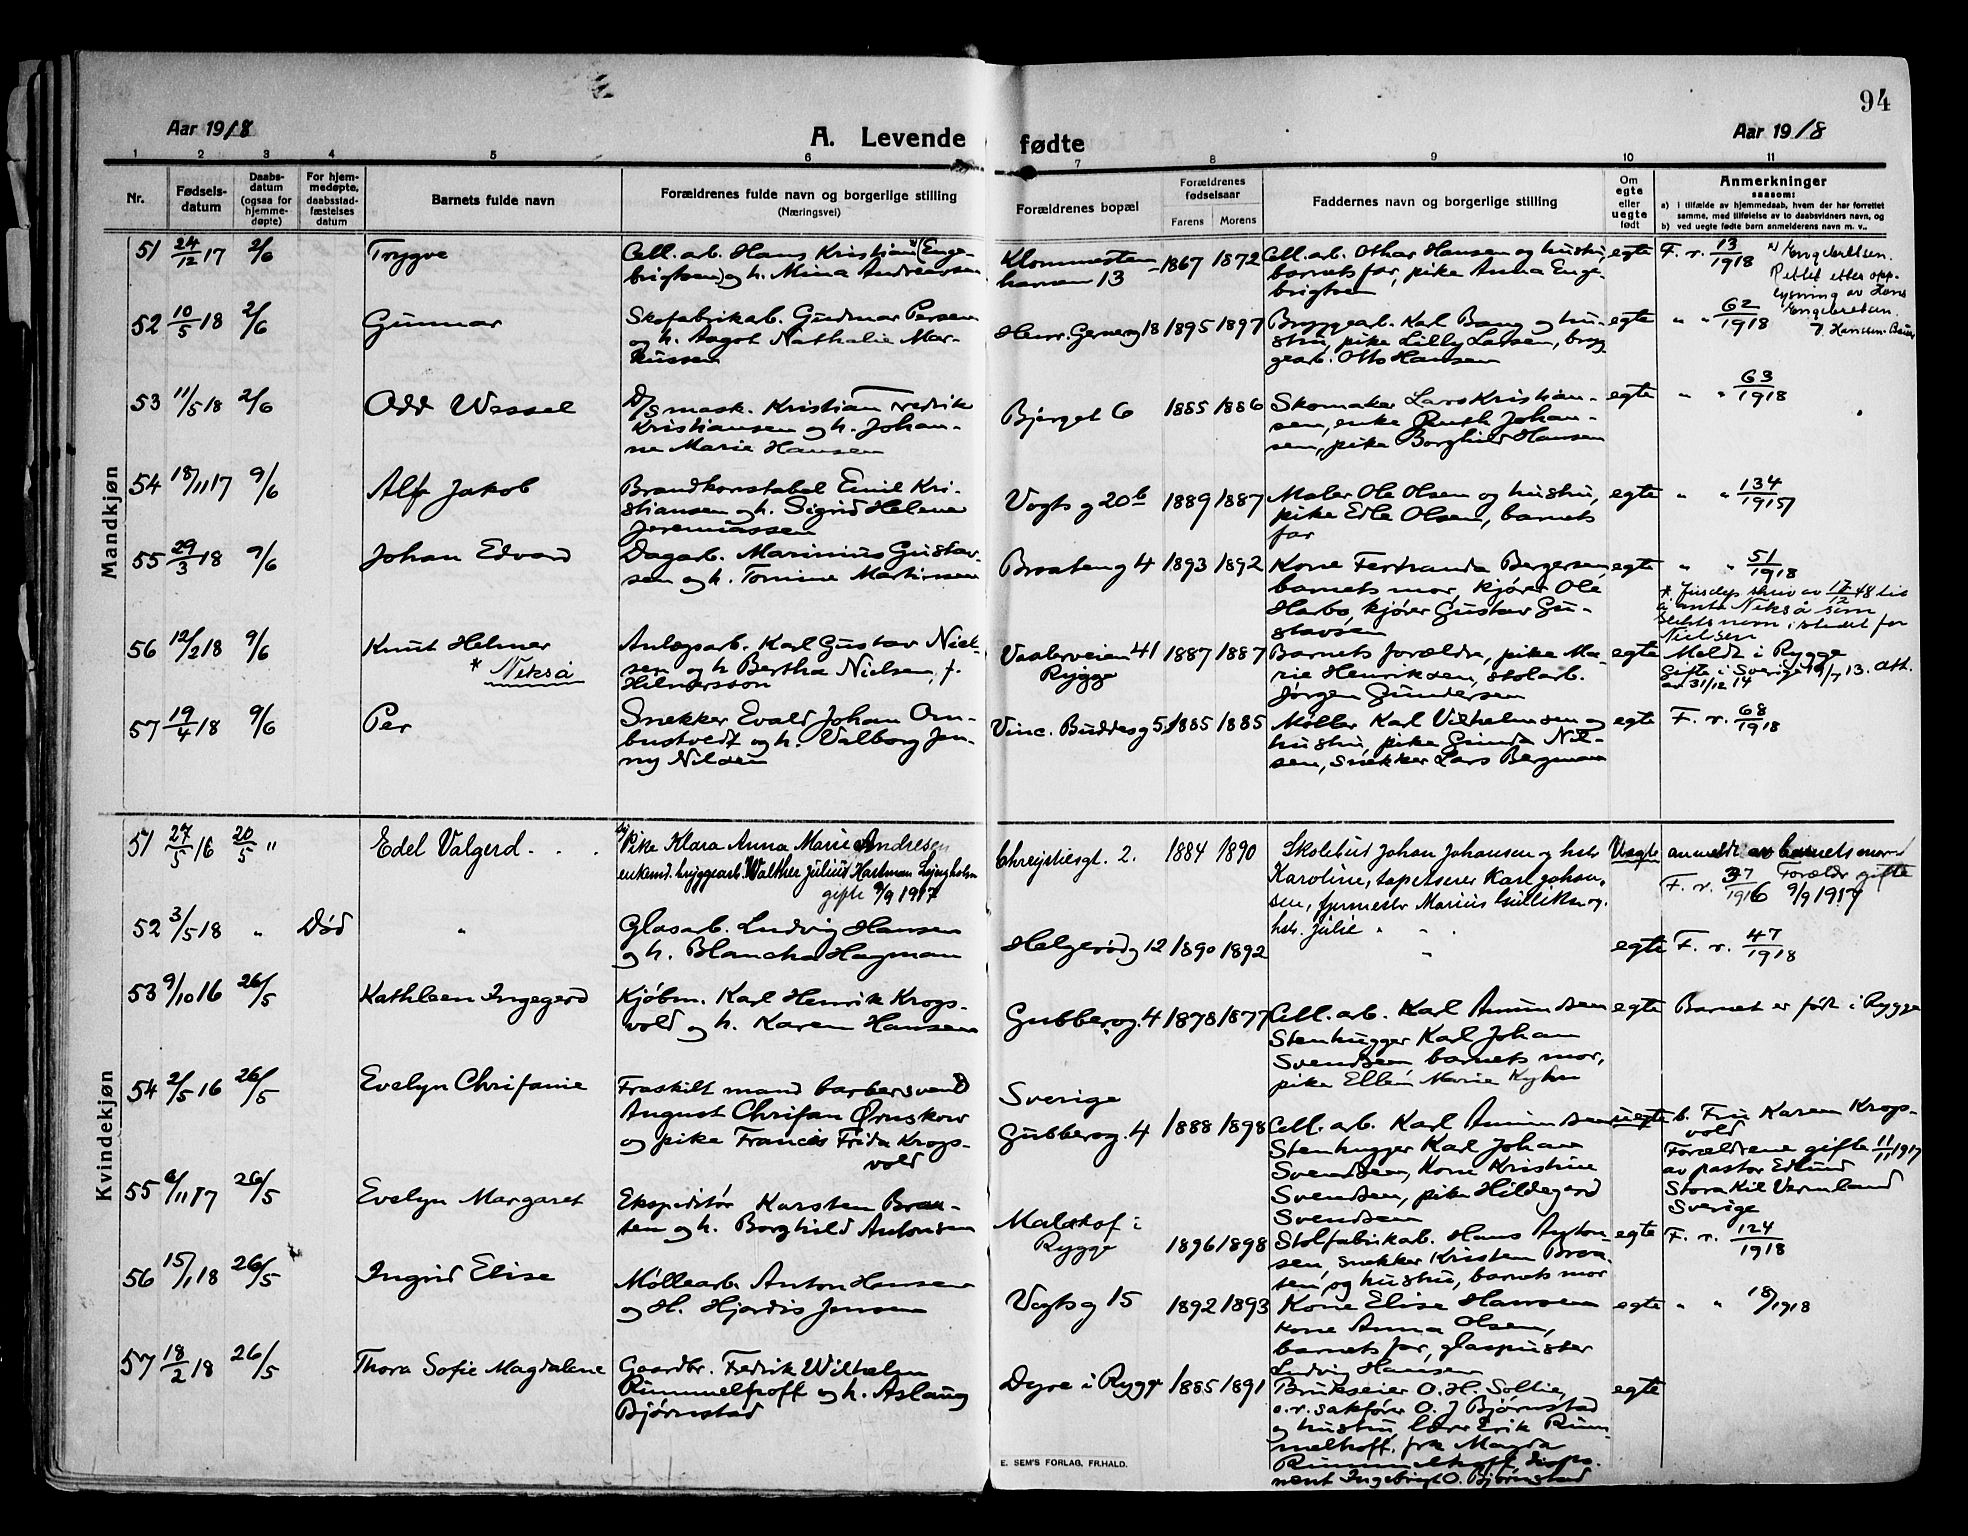 94
Aar 1918
A. Levende fødte
Aar 1918
1 2 3 4 5 6 7 8 9 10 11
Nr.
Fødsels-
datum
Daabs-
datum
(ogsaa for
hjemme-
døpte)
For hjem-
medøpte,
daabsstad-
fæstelses
datum
Barnets fulde navn
Forældrenes fulde navn og borgerlige stilling
(Næringsvei)
Forældrenes bopæl
Forældrenes
fødselsaar
Farens Morens
Faddernes navn og borgerlige stilling
Om
egte
eller
uegte
født
Anmerkninger
saasom:
a) i tilfælde av hjemmedaab, hvem der har forrettet
samme, med tilføielse av to daabsvidners navn, og
b) ved uegte fødte barn anmelderens navn m. v..
Mandkjøn
51 24/12 17 2/6 Trygve
Cell. arb. Hans Kristian (Enge-
brigtsen) og h. Mina Andreassen
13 1867 1872
Cell. arb. Othar Hansen og hustru,
barnets far, pike Anna Enge-
brigtsen
egte F. r. 13/1918
Engebretsen.
Rettet efter opp-
lysning av Hans
Engebretsen
52 10/5 18 2/6 Gunnar
Skofabrikab. Gudmar Persen
og h. Aagot Nathalie Mar-
kussen
Henr. Gernersg 18 1895 1897
Bryggearb. Karl Bang og hu-
stru, pike Lilly Larsen, bryg-
gearb. Otto Hansen
egte " " 62/1918
53 11/5 18 2/6 Odd Wessel
D/S mask. Kristian Fredrik
Kristiansen og h. Johan-
ne Marie Hansen
Bjerget 6 1885 1886
Skomaker Lars Kristian-
sen, enke Ruth Johan-
sen, pike Borghild Hansen
egte " " 63/1918
54 18/11 17 9/6 Alf Jakob
Brandkonstabel Emil Kri-
stiansen og h. Sigrid Helene
Jeremiassen
Vogts g 20b 1889 1887
Maler Ole Olsen og hustru,
pike Edle Olsen, barnets
far
egte " " 134/1917
55 29/3 18 9/6 Johan Edvard
Dagarb. Marinius Gustav-
sen og h. Tomine Martinsen
Braateng 4 1893 1892
Kone Ferdnanda Bergersen,
barnets mor, kjører Ole
Harbo, kjører Gustav Gu-
stavsen
egte " " 51/1918
56 12/2 18 9/6 Knut Helmer
* Niksø
Anlægsarb. Karl Gustav Niel-
sen og h Bertha Nielsen, f.
Hilmersson
Vaalerveien 41 1887 1887
Rygge
Barnets forældre, pike Ma-
rie Henriksen, stolarb.
Jørgen Gundersen
egte
slektsnavn istedet for
Nielsen
Meldt i Rygge
Gifte i Sverige 19/7 13. Att.
av 31/12 14
57 19/4 18 9/6 Per
Snekker Evald Johan Om-
bustvedt og h. Valborg Jen-
ny Nilsen
Vinc. Buddesg 5 1885 1885
Møller Karl Vilhelmsen og
hustru, pike Gunda Nil-
sen, snekker Lars Bergman
egte F. r. 68/1918
Kvindekjøn
51 27/5 16 20/5 " Edel Valgerd
Pike Klara Anna Marie Andresen
enkemd. bryggearb. Walther Julius Hartman Ljungholm
gifte 9/9 1917
Chrystiesgt. 2. 1884 1890
Skolebud Johan Johansen og hstr
Karoline, tapetserer Karl Johan-
sen, fyrmester Marius Gulliksen og
hstr. Julie
Uegte anmeldt av barnets mor
F. r. 37/1916 Forældr gifte
9/9 1917
52 3/5 18 " Død "
Glasarb. Ludvig Hansen
og h. Blancha Hagman
Helgerødg 12 1890 1892
"
egte F. r. 47/1918
53 9/10 16 26/5 Kathleen Ingegerd
Kjøbm. Karl Henrik Krogs-
vold og h. Karen Hansen
Gubberog. 4 1878 1877
Cell. arb. Karl Amundsen
Stenhugger Karl Johan
Svendsen, barnets mor,
pike Ellen Marie Kyhn
egte Barnet er født i Rygge
54 2/5 16 26/5 Evelyn Chrifanie
Fraskilt mand barbersvend
August Chrifan Ørnskow
og pike Francis Frida Krogs-
vold
Sverige
Gubberog. 4 1888 1898
Cell. arb. Karl Amundsen
Stenhugger Karl Johan
Svendsen, Kone Kristine
Svendsen, pike Hildegerd
Svendsen
uegte b. Fru Karen Krogs-
vold
Forældrene gifte 11/11 1917
av pastor Edlund
Stora Kil Vermland
Sverige
55 6/11 17 26/5 Evelyn Margaret
Ekspeditør Karsten Braa-
ten og h. Borghild Antonsen
Malakof i
Rygge
1896 1898
Stolfabrikab. Hans Anton-
sen, snekker Kristen Braa-
ten, og hustru, barnets mor
egte F. r. 124/1918
56 15/1 18 26/5 Ingrid Elise
Møllearb. Anton Hansen
og H. Hjørdis Jensen
Vogts g 15 1892 1893
Kone Elise Hansen
kone Anna Olsen,
barnets far, glaspuster
Ludvig Hansen
egte " " 18/1918
57 18/2 18 26/5 Thora Sofie Magdalene
Gaardbr. Fedrik Wilhelm
Rummelhoff og h. Aslaug
Bjørnstad
Dyre i Rygge 1885 1891
Brukseier O. H. Soltie,
o.r. sakfører O. J Bjørnstad
og hustru, lærer Erik Rum-
melhoff, frk Magda
Rummelhoff, dispo-
nent Ingebrigt O. Bjørnstad
egte
E. SEM'S FORLAG, FR.HALD.